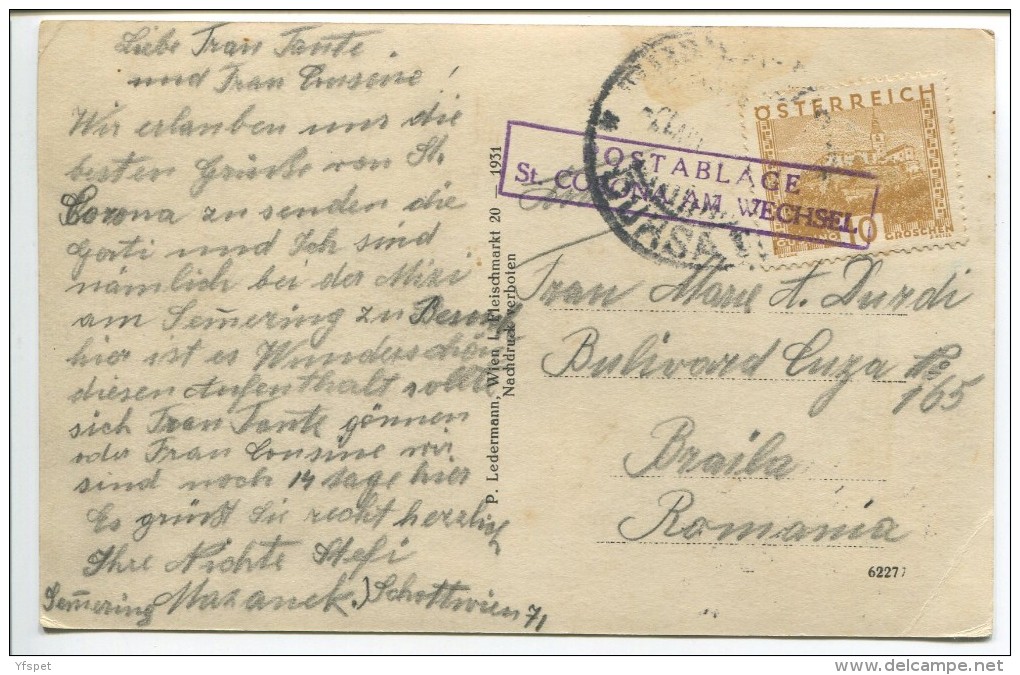 Liebe Frau Tante
und Frau Cousine!
Wir erlauben uns die
besten Grüße von St.
Corona zu senden die
Gorti und Ich sind
nämlich bei der Mizi
am Sem̄ering zu Besuch
hier ist es Wunderschön
diesen Aufenthalt sollte
sich Frau Tante gönnen
oder Frau Cousine wir
sind noch 14 tage hier
Es grüßt Sie recht herzlich
Ihre Nichte Stefi
Mazanek.) Schottwien 71
Sem̄ering
P. Ledermann, Wien I., Fleischmarkt 20 — 1931
Nachdruck verboten
POSTABLAGE
St. CORONA AM WECHSEL
ÖSTERREICH
10
GROSCHEN
Frau Marie A. Durdi
Bulivard Cuza No
165
Braila
Romania
62277
Yfspet
www.delcampe.net